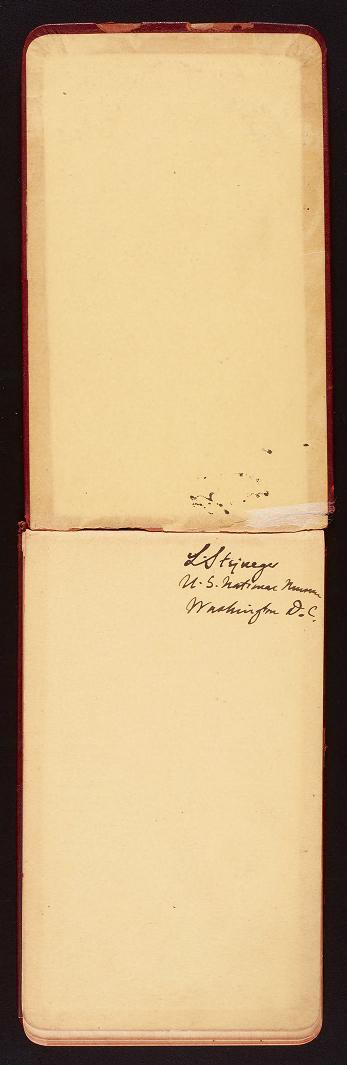 L. Stejneger
U. S. National Museum
Washington D. C.